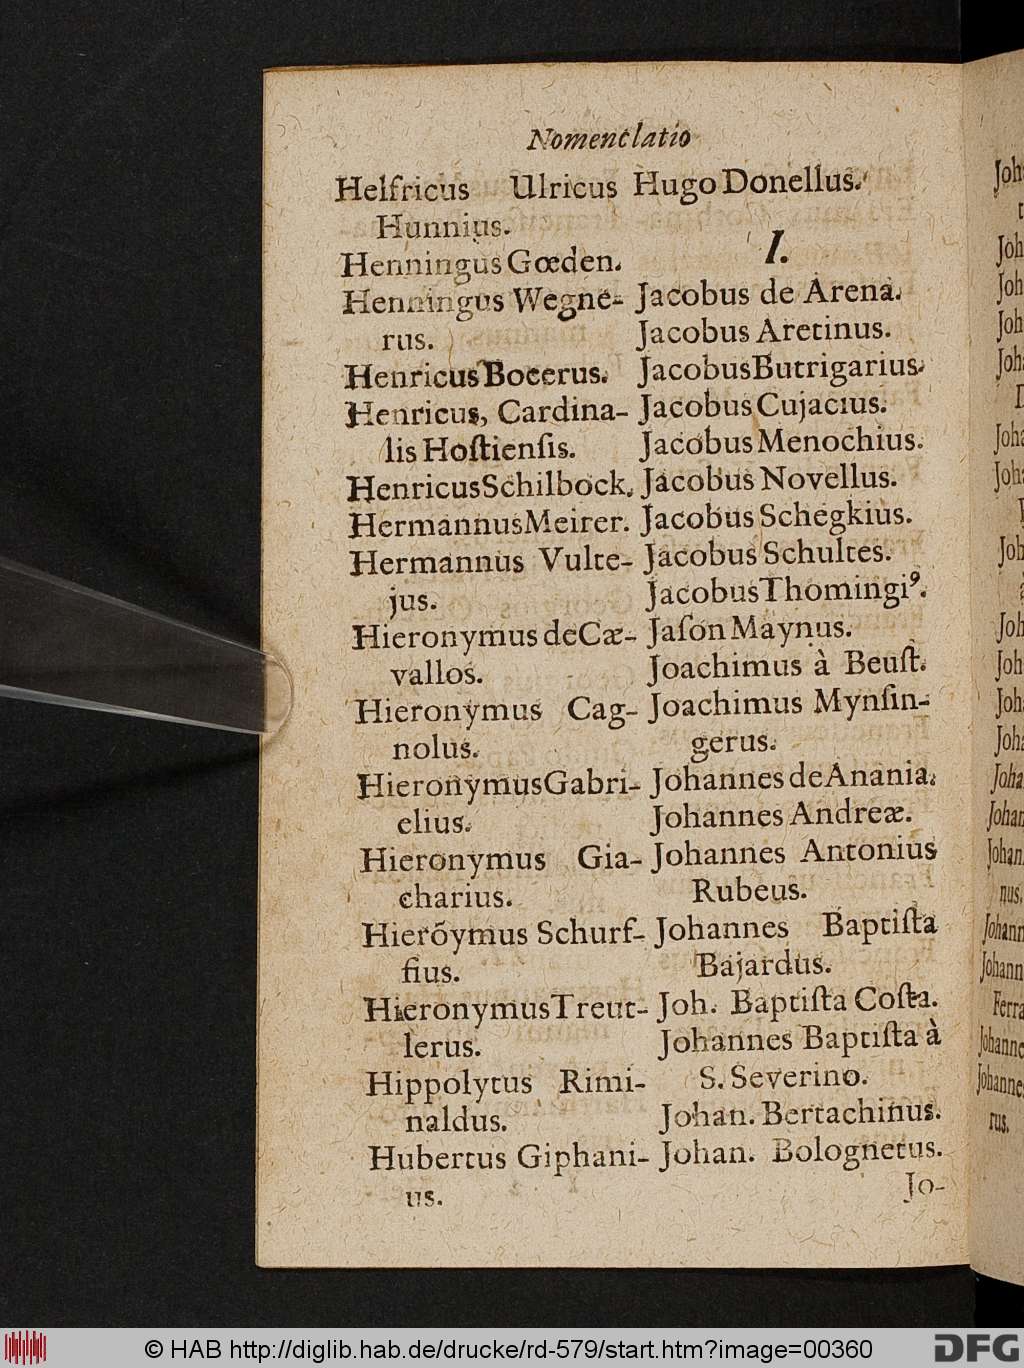 Nomenclatio
Helfricus Ulricus
Hunnius.
Henningus Gœden.
Henningus Wegne-
rus.
Henricus Bocerus.
Henricus, Cardina-
lis Hoſtienſis.
Henricus Schilbock.
Hermannus Meirer.
Hermannus Vulte-
jus.
Hieronymus de Cæ-
vallos.
Hieronymus Cag-
nolus.
Hieronymus Gabri-
elius.
Hieronymus Gia-
charius.
Hierõymus Schurf-
fius.
Hieronymus Treut-
lerus.
Hippolytus Rimi-
naldus.
Hubertus Giphani-
us.
Hugo Donellus.
I.
Jacobus de Arena.
Jacobus Aretinus.
Jacobus Butrigarius.
Jacobus Cujacius.
Jacobus Menochius.
Jacobus Novellus.
Jacobus Schegkius.
Jacobus Schultes.
Jacobus Thomingiꝰ.
Jaſon Maynus.
Joachimus à Beuſt.
Joachimus Mynſin-
gerus.
Johannes de Anania.
Johannes Andreæ.
Johannes Antonius
Rubeus.
Johannes Baptiſta
Bajardus.
Joh. Baptiſta Coſta.
Johannes Baptiſta à
S. Severino.
Johan. Bertachinus.
Johan. Bolognetus.
Jo-
© HAB http://diglib.hab.de/drucke/rd-579/start.htm?image=00360
DFG